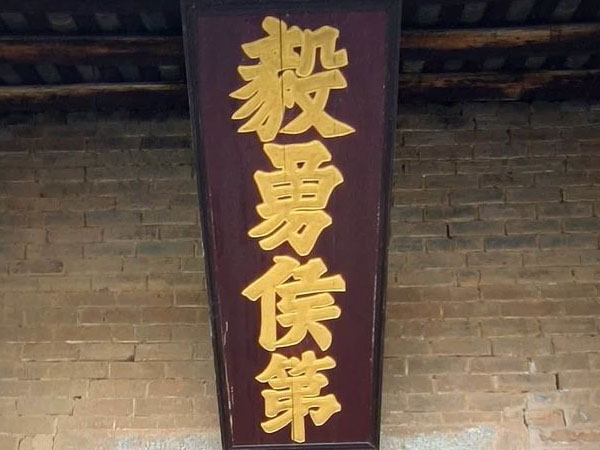 毅勇侯第